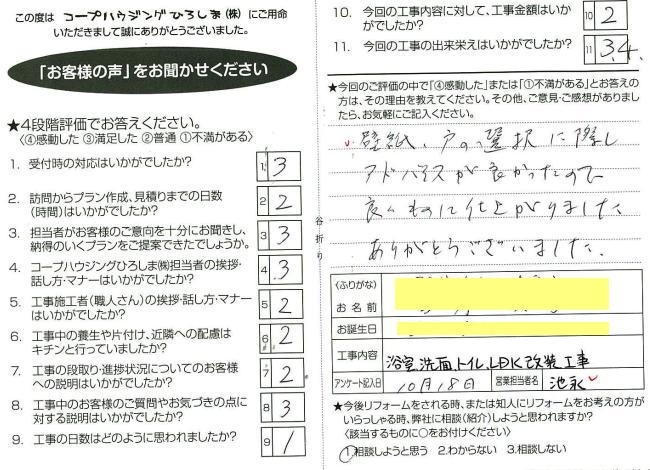 この度は コープハウジングひろしま(株) にご用命
いただきまして誠にありがとうございました。
「お客様の声」をお聞かせください
★4段階評価でお答えください。
〈④感動した ③満足した ②普通 ①不満がある〉
1. 受付時の対応はいかがでしたか? 1 3
2. 訪問からプラン作成、見積りまでの日数
(時間)はいかがでしたか? 2 2
3. 担当者がお客様のご意向を十分にお聞きし、
納得のいくプランをご提案できたでしょうか。 3 3
4. コープハウジングひろしま㈱担当者の挨拶・
話し方・マナーはいかがでしたか? 4 3
5. 工事施工者(職人さん)の挨拶・話し方・マナー
はいかがでしたか? 5 2
6. 工事中の養生や片付け、近隣への配慮は
キチンと行っていましたか? 6 2
7. 工事の段取り・進捗状況についてのお客様
への説明はいかがでしたか? 7 2
8. 工事中のお客様のご質問やお気づきの点に
対する説明はいかがでしたか? 8 3
9. 工事の日数はどのように思われましたか? 9 1
谷折り
10. 今回の工事内容に対して、工事金額はいか
がでしたか? 10 2
11. 今回の工事の出来栄えはいかがでしたか? 11 3,4.
★今回のご評価の中で「④感動した」または「①不満がある」とお答えの
方は、その理由を教えてください。その他、ご意見・ご感想がありまし
たら、お気軽にご記入ください。
壁紙、戸の選択に際し
アドバイスが良かったので
良いものに仕上がりました
ありがとうございました.
〈ふりがな〉
お名前
お誕生日
工事内容 浴室,洗面,トイレ,LDK改装工事
アンケート記入日 10月18日 営業担当者名 池永
★今後リフォームをされる時、または知人にリフォームをお考えの方が
いらっしゃる時、弊社に相談(紹介)しようと思われますか?
〈該当するものに○をお付けください〉
1.相談しようと思う 2.わからない 3.相談しない